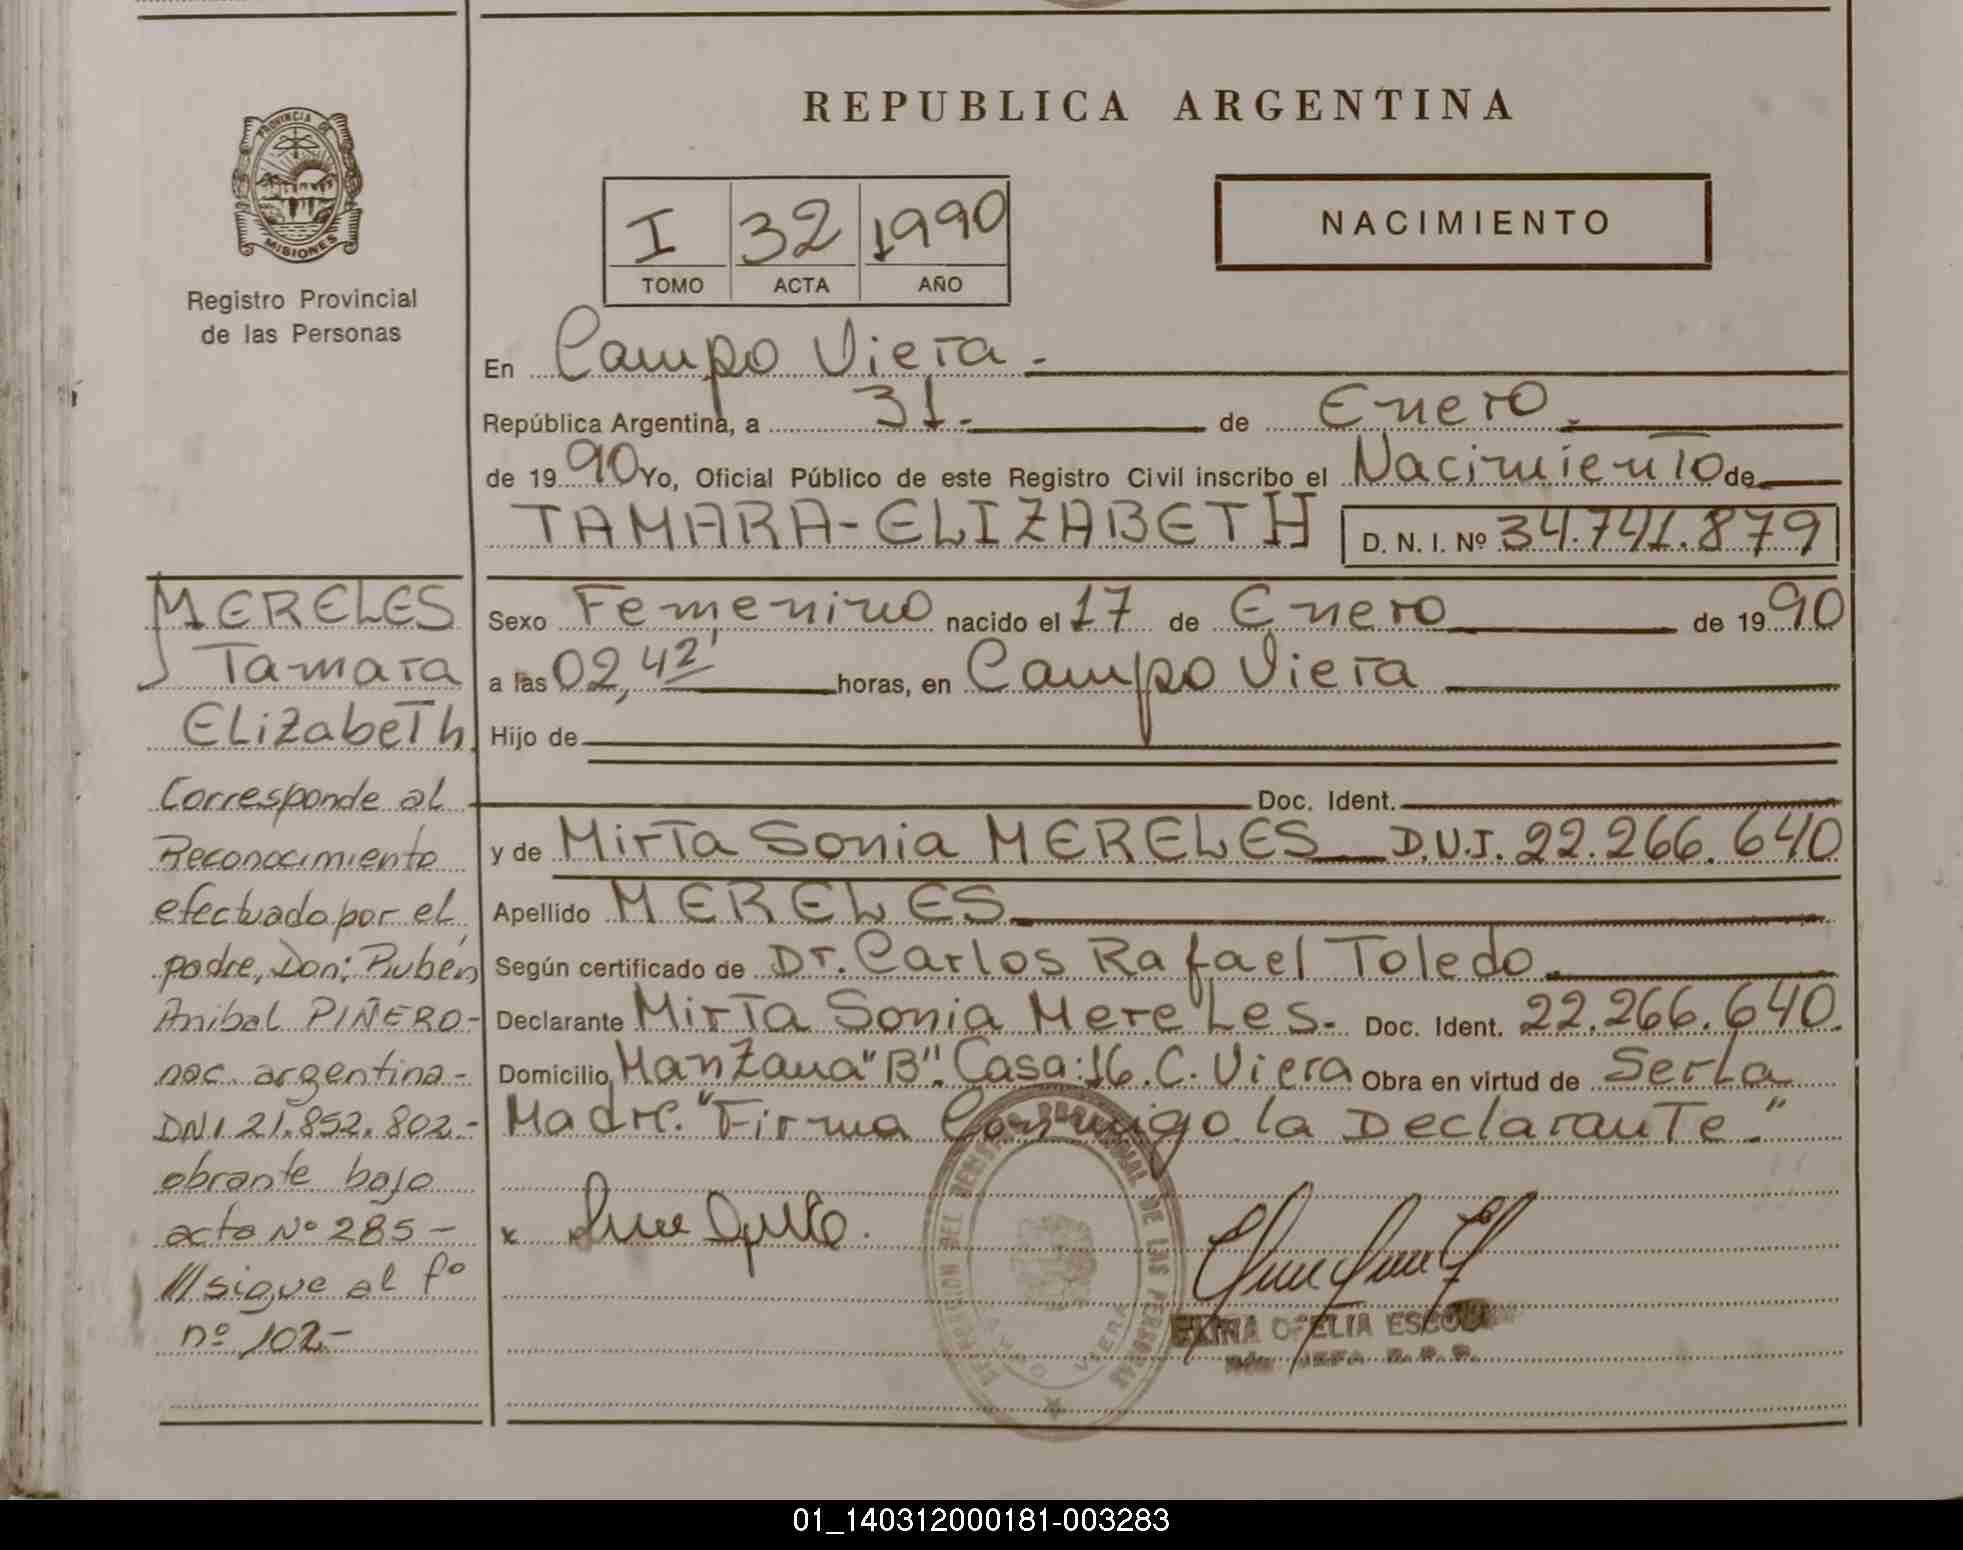 REPUBLICA ARGENTINA
PROVINCIA DE
MISIONES
Registro Provincial
de las Personas
I 32 1990
TOMO ACTA AÑO
NACIMIENTO
En Campo Viera.-
República Argentina, a 31.- de Enero.
de 1990 Yo, Oficial Público de este Registro Civil inscribo el Nacimiento de
TAMARA-ELIZABETH D. N. I. Nº 34.741.879
Sexo Femenino nacido el 17 de Enero de 1990
a las 02,42' horas, en Campo Viera
Hijo de
Doc. Ident.
y de Mirta Sonia MERELES D.N.I. 22.266.640
Apellido MERELES
Según certificado de Dr. Carlos Rafael Toledo.
Declarante Mirta Sonia Mereles.- Doc. Ident. 22.266.640.
Domicilio Manzana "B". Casa:16. C. Viera Obra en virtud de Ser la
Madre. "Firma Conmigo la Declarante"
MERELES
Tamara
Elizabeth
Corresponde al
Reconocimiento
efectuado por el
padre, Don: Rubén
Anibal PIÑERO-
nac. argentina-
DNI 21.852.802.-
obrante bajo
acta Nº 285-
/// sigue al fº
nº 102.-
x
DE LAS PERSONAS
VIERA
OFELIA
01_140312000181-003283